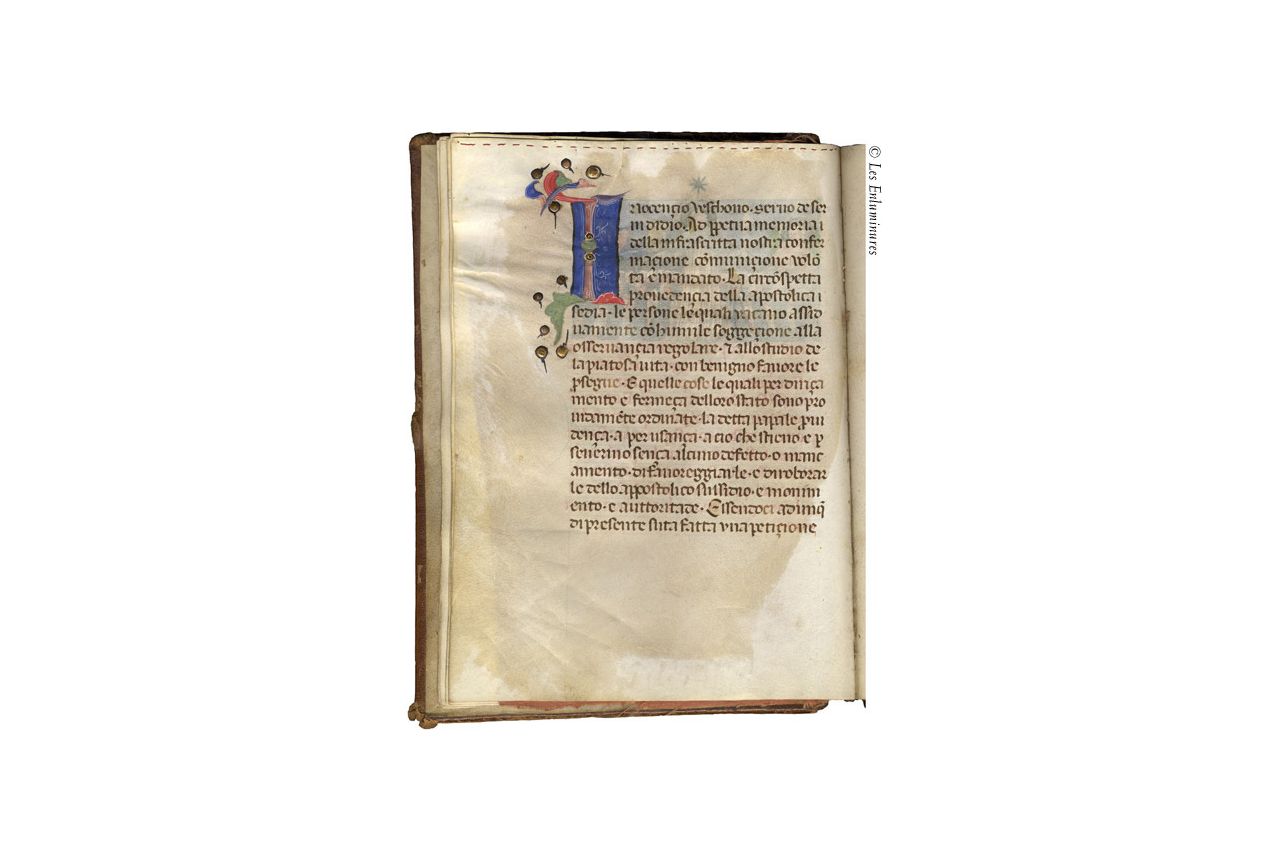 Innocençio Veschovo · servo de ser
ui didio · Ad ꝑpetua memoria i
della infrascritta nostra confer
maçione cōmuniçione volō
ta e mandato · La circōspetta
provedençia della apostolica i
sedia · le persone le quali vacano assid
uamente cō humile soggeçione alla
osservançia regolare · ⁊ allo studio de
la piatosa vita · con benigno favore le
ꝓsegue · E quelle cose le quali per diriça
mento e fermeça delloro stato sono pro
vidamēte ordinate · la detta papale ꝓvi
dença · a per usança · a cio che stieno e ꝑ
severino sença alcuno defetto · o manc
amento · di favoreggiarle · e diroborar
le dello appostolico sussidio · e monim
ento · e auttoritade · Essendoci adunq̄
di presente suta fatta una petiçione
© Les Enluminures